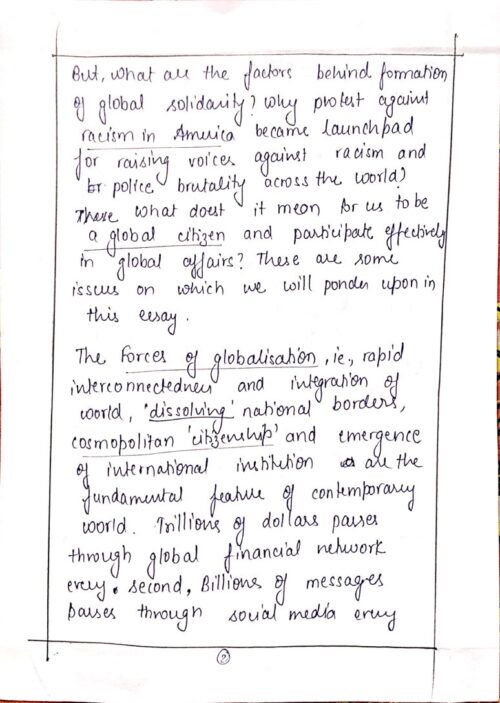 But, what are the factors behind formation
of global solidarity? Why protest against
racism in America became launchpad
for raising voices against racism and
for police brutality across the world?
There what does it mean for us to be
a global citizen and participate effectively
in global affairs? These are some
issues on which we will ponder upon in
this essay.
The Forces of globalisation, ie., rapid
interconnectedness and integration of
world, 'dissolving' national borders,
cosmopolitan 'citizenship' and emergence
of international institution are the
fundamental feature of contemporary
world. Trillions of dollars passes
through global financial network
every second, Billions of messages
passes through social media every
2